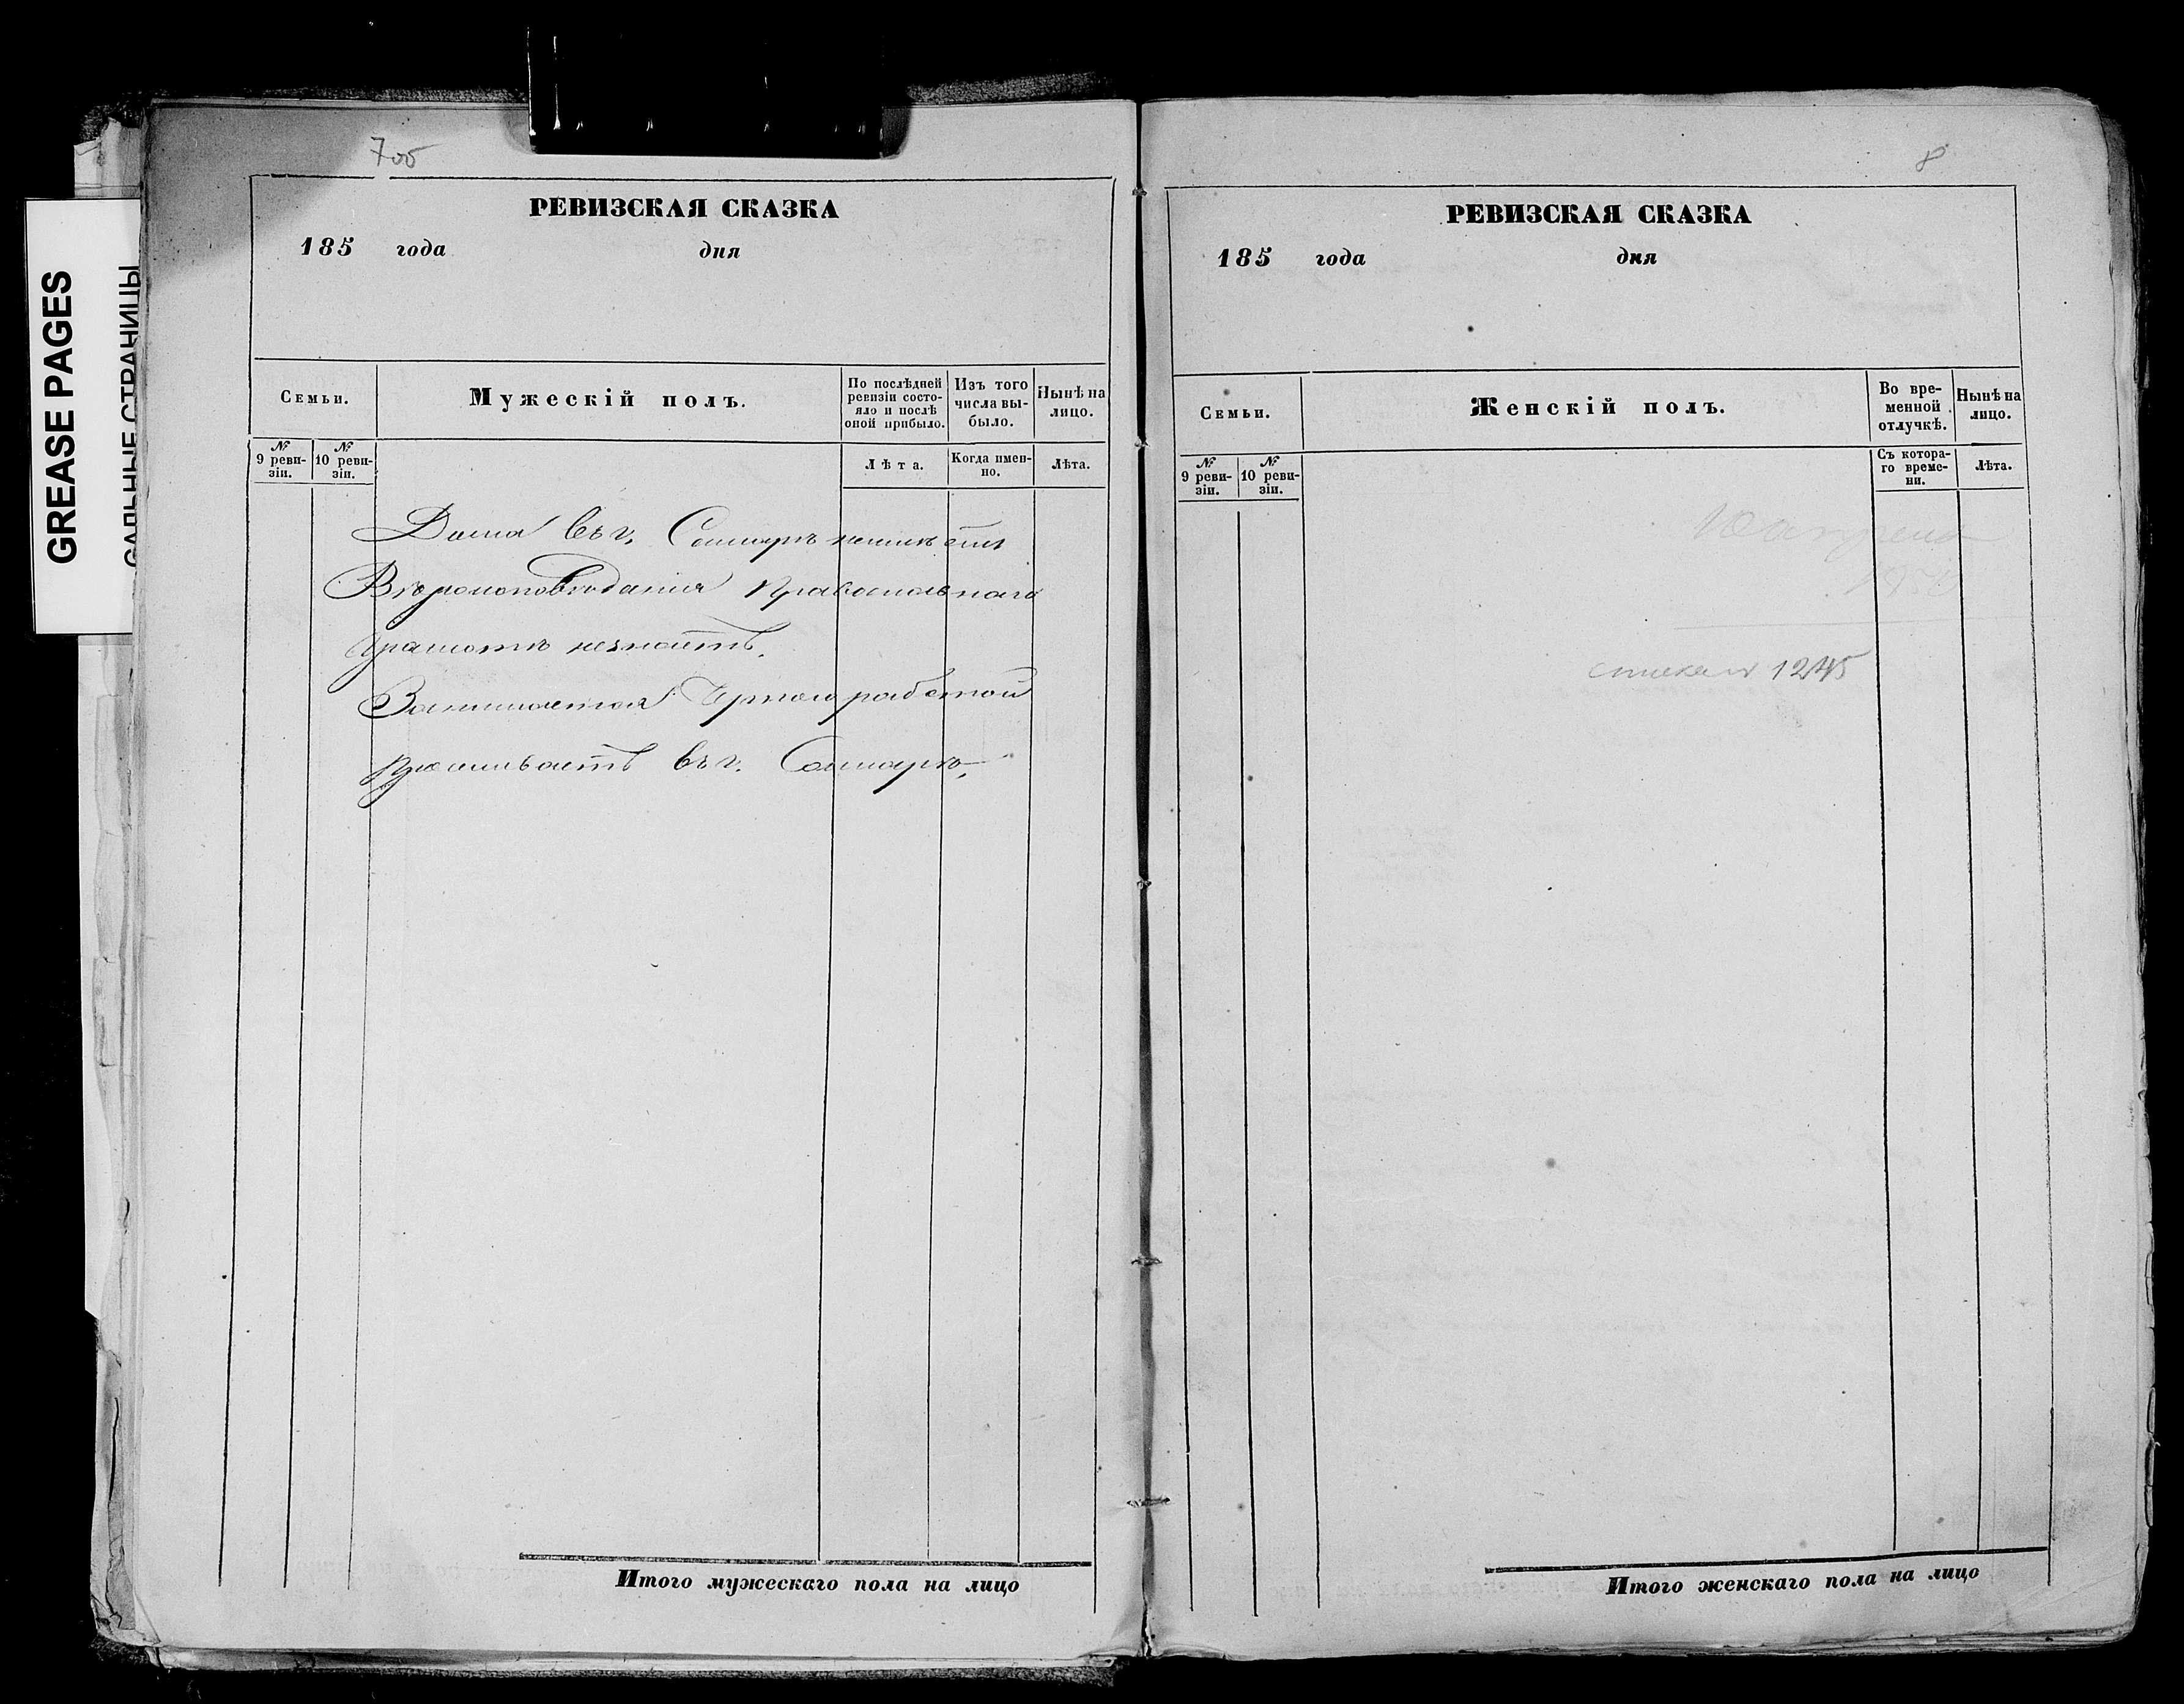 GREASE PAGES
САЛЬНЫЕ СТРАНИЦЫ
7об
РЕВИЗСКАЯ СКАЗКА
185 года дня
Семьи.
Мужескій полъ.
По послѣдней ревизіи состояло и послѣ оной прибыло.
Изъ того числа выбыло.
Нынѣ на лицо.
№ 9 ревизіи.
№ 10 ревизіи.
Лѣта.
Когда именно.
Лѣта.
Дома въ г. Самарѣ неимѣетъ
Вѣроисповѣданія Православнаго
Грамотѣ незнаетъ.
Занимается Черною работой
Проживаетъ въ г. Самарѣ.
Итого мужескаго пола на лицо
8
РЕВИЗСКАЯ СКАЗКА
185 года дня
Семьи.
Женскій полъ.
Во временной отлучкѣ.
Нынѣ на лицо.
№ 9 ревизіи.
№ 10 ревизіи.
Съ котораго времени.
Лѣта.
1245
Итого женскаго пола на лицо